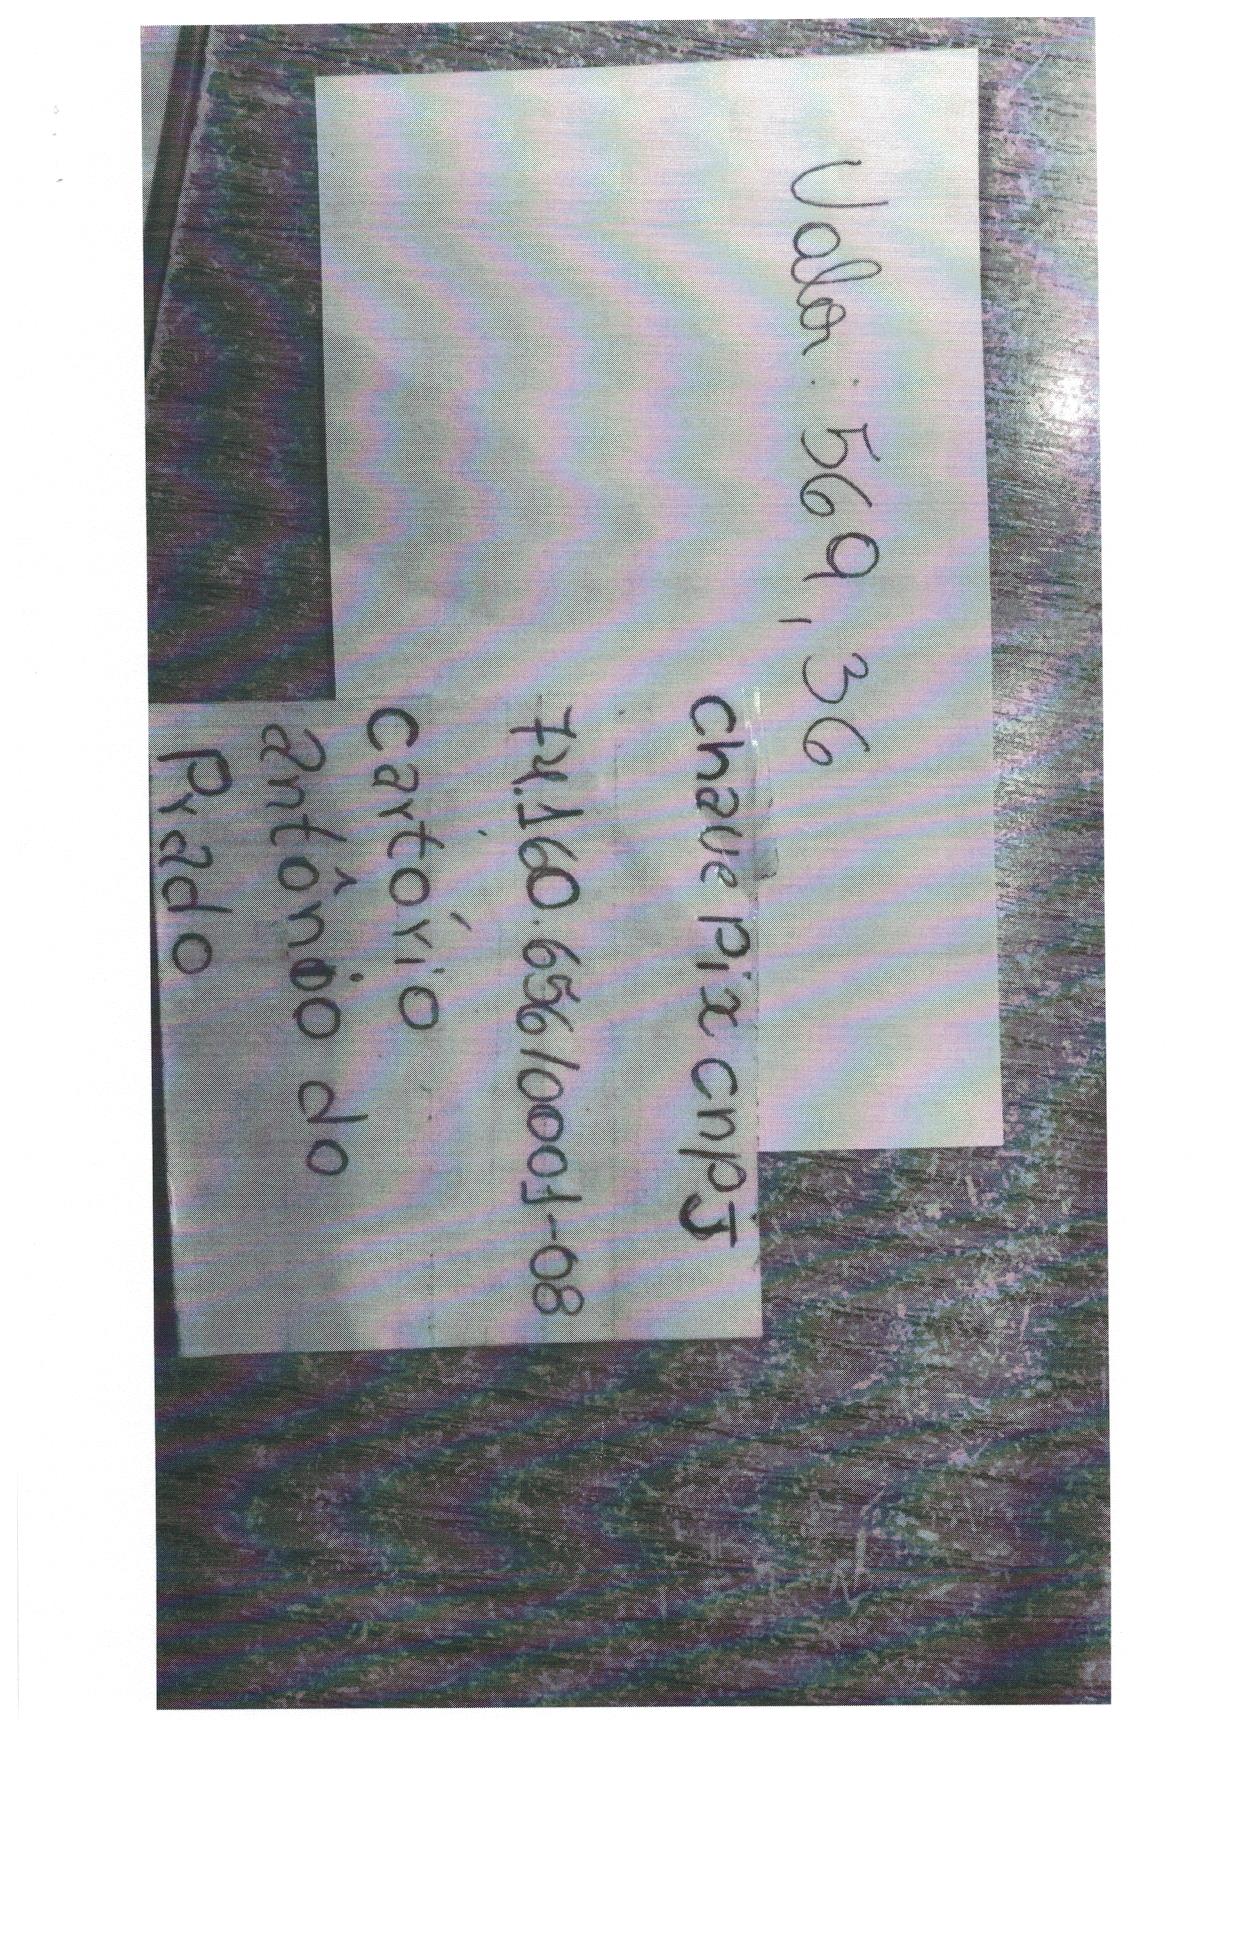 Valor: 569,36
chave pix cnpJ
74.160.656/0001-08
cartório
antônio do
Prado